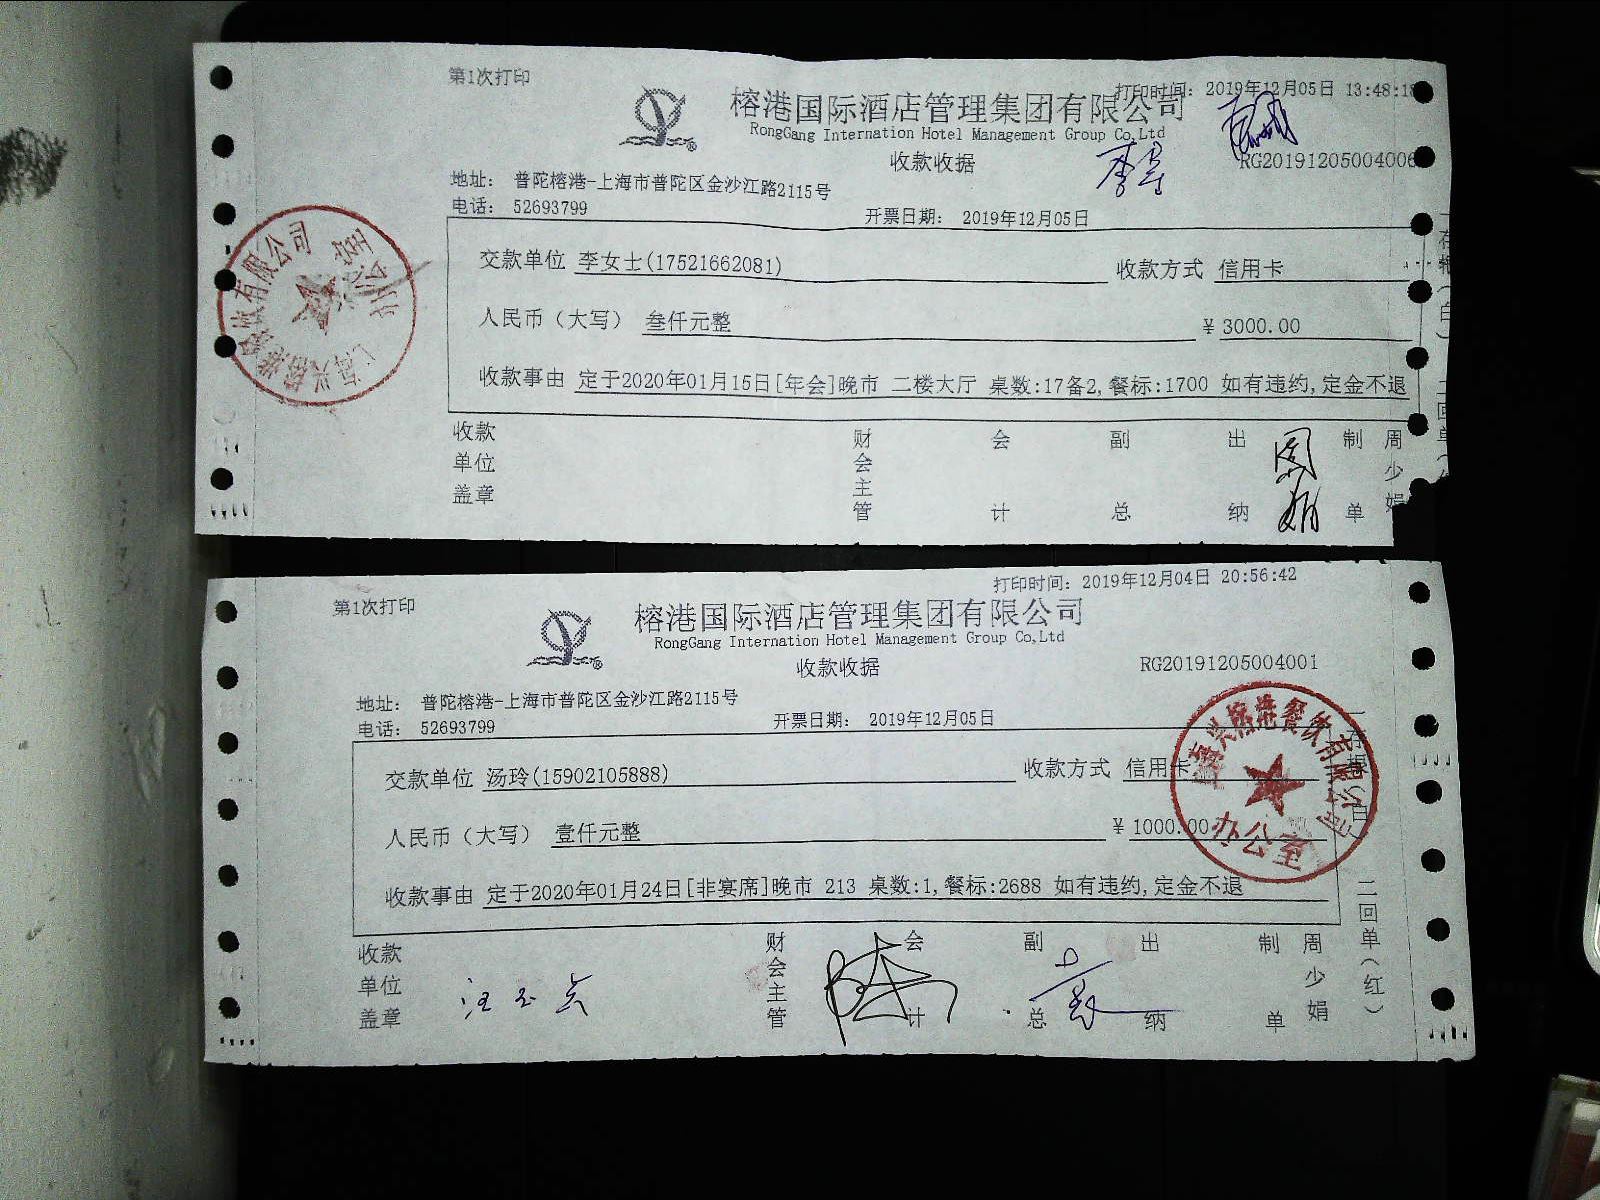 第1次打印
打印时间: 2019年12月05日 13:48:18
榕港国际酒店管理集团有限公司
RongGang Internation Hotel Management Group Co,Ltd
收款收据
RG20191205004006
地址: 普陀榕港-上海市普陀区金沙江路2115号
电话: 52693799
开票日期: 2019年12月05日
交款单位 李女士(17521662081)
收款方式 信用卡
人民币（大写） 叁仟元整
¥ 3000.00
收款事由 定于2020年01月15日[年会]晚市 二楼大厅 桌数:17备2,餐标:1700 如有违约,定金不退
收款单位盖章 财会主管 会计 副总 出纳 制单 周少娟
第1次打印
打印时间: 2019年12月04日 20:56:42
榕港国际酒店管理集团有限公司
RongGang Internation Hotel Management Group Co,Ltd
收款收据
RG20191205004001
地址: 普陀榕港-上海市普陀区金沙江路2115号
电话: 52693799
开票日期: 2019年12月05日
交款单位 汤玲(15902105888)
收款方式 信用卡
人民币（大写） 壹仟元整
¥ 1000.00
收款事由 定于2020年01月24日[非宴席]晚市 213 桌数:1,餐标:2688 如有违约,定金不退
一存根（白） 二回单（红）
上海兴榕港餐饮有限公司
办公室
收款单位盖章 财会主管 会计 副总 出纳 制单 周少娟